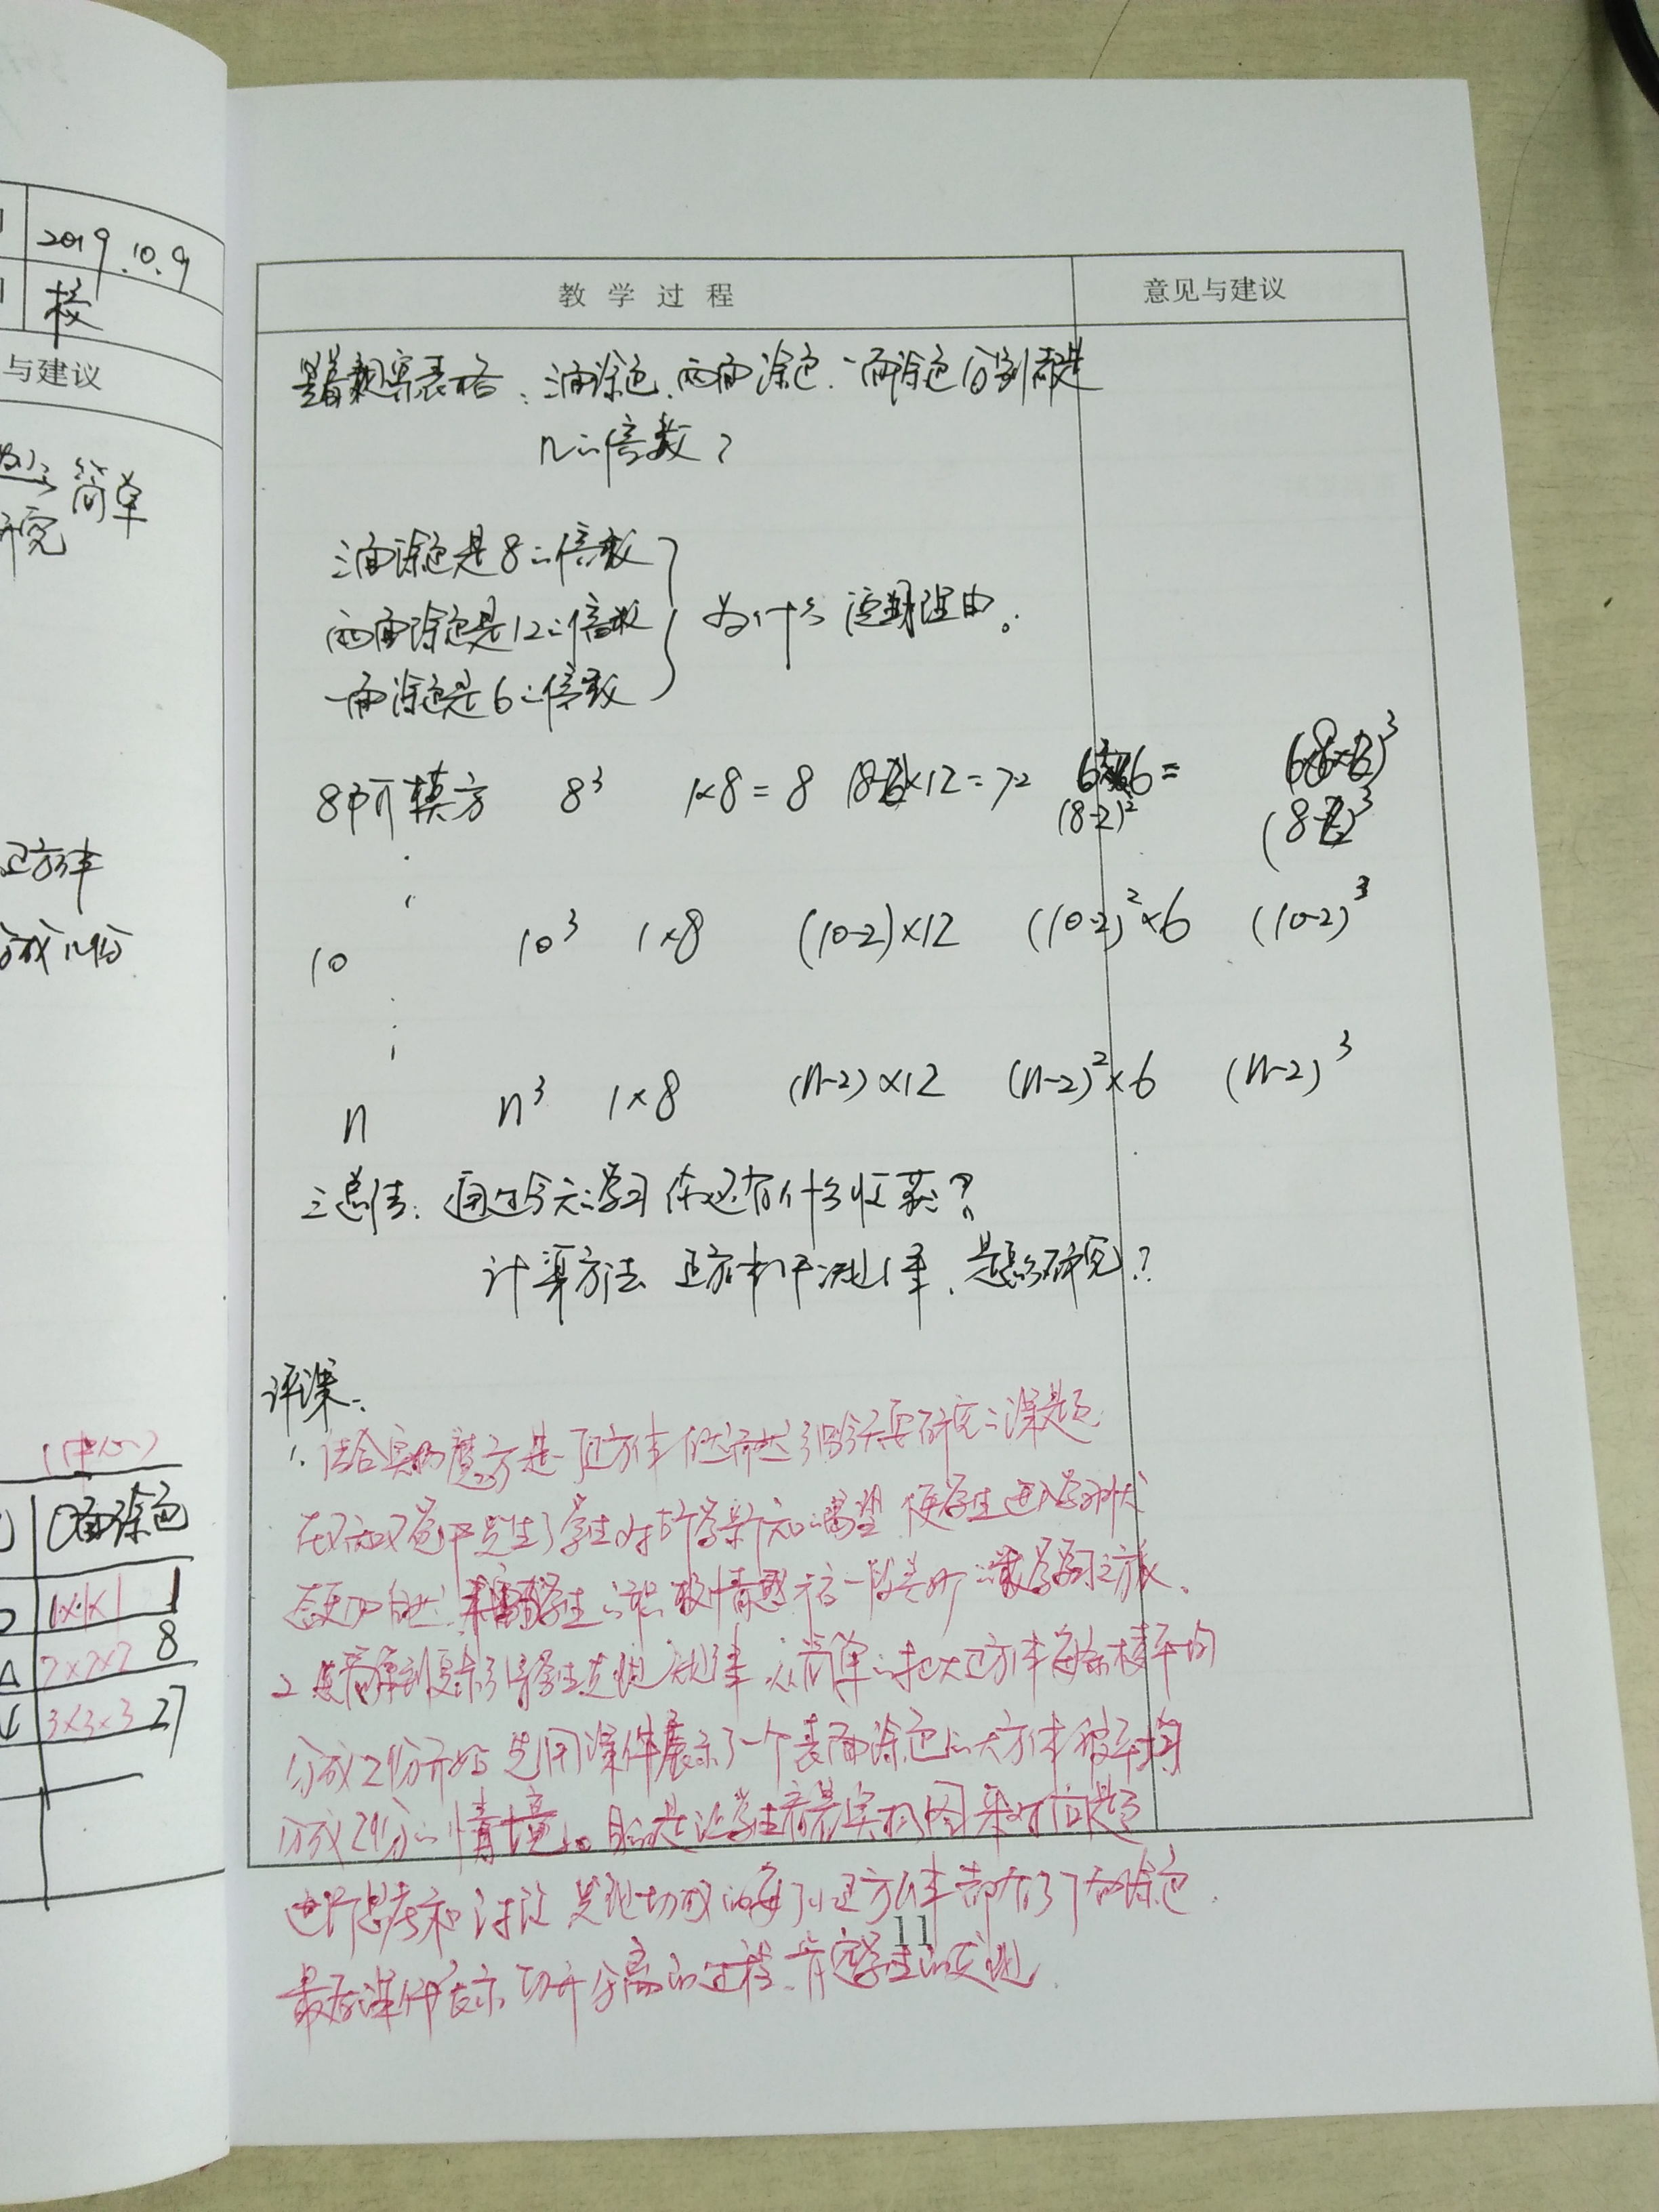 2019.10.9
校
与建议
简单
研究
正方体
分成n份
(中心)
0面涂色
1×1×1 1
2×2×2 8
3×3×3 27
教学过程
意见与建议
观察表格:三面涂色、两面涂色、一面涂色分别都是
n的倍数?
三面涂色是8的倍数
两面涂色是12的倍数
一面涂色是6的倍数
为什么 理由。
8阶模方 8³ 1×8=8 ×12=72 6=
(8-2)² (8-2)³
10 10³ 1×8 (10-2)×12 (10-2)²×6 (10-2)³
n n³ 1×8 (n-2)×12 (n-2)²×6 (n-2)³
三总结:通过今天的学习你还有什么收获?
计算方法 正方体 规律、是怎么研究?
评课:
1.结合实物魔方是一正方体 引出今天要研究的课题
学生对 新知的渴望 使学生进入学习状
态更加自然 学生的积极情感 一段美好的数学学习之旅、
2 简单到复杂引导学生发现规律 从简单的把大正方体每条棱平均
分成2份开始 先用课件展示了一个表面涂色的大方体被平均
分成2份的情境。 让学生看着实物图来对问题
进行思考和讨论 发现切成的每个小正方体都有3个面涂色.
最后课件展示 切开分离的过程、肯定学生的发现.
11